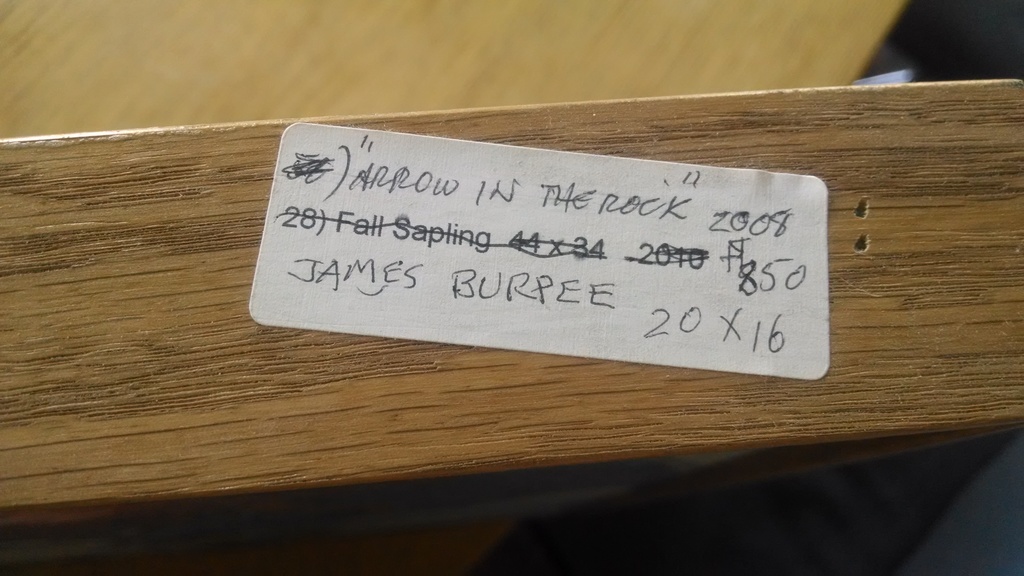 ) "ARROW IN THE ROCK" 2008
28) Fall Sapling 44 x 34 2010 $850
JAMES BURPEE 20 X 16